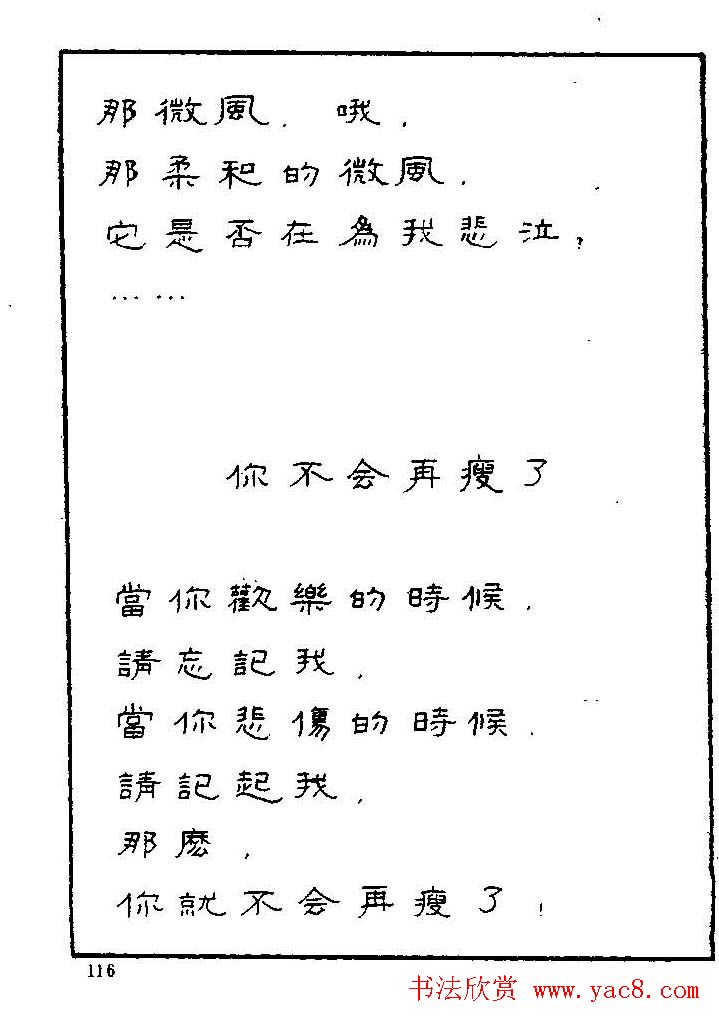 那微風，哦，
那柔和的微風，
它是否在為我悲泣？
……
你不会再瘦了
當你歡樂的時候，
請忘記我，
當你悲傷的時候，
請記起我，
那麽，
你就不会再瘦了！
116
书法欣赏 www.yac8.com